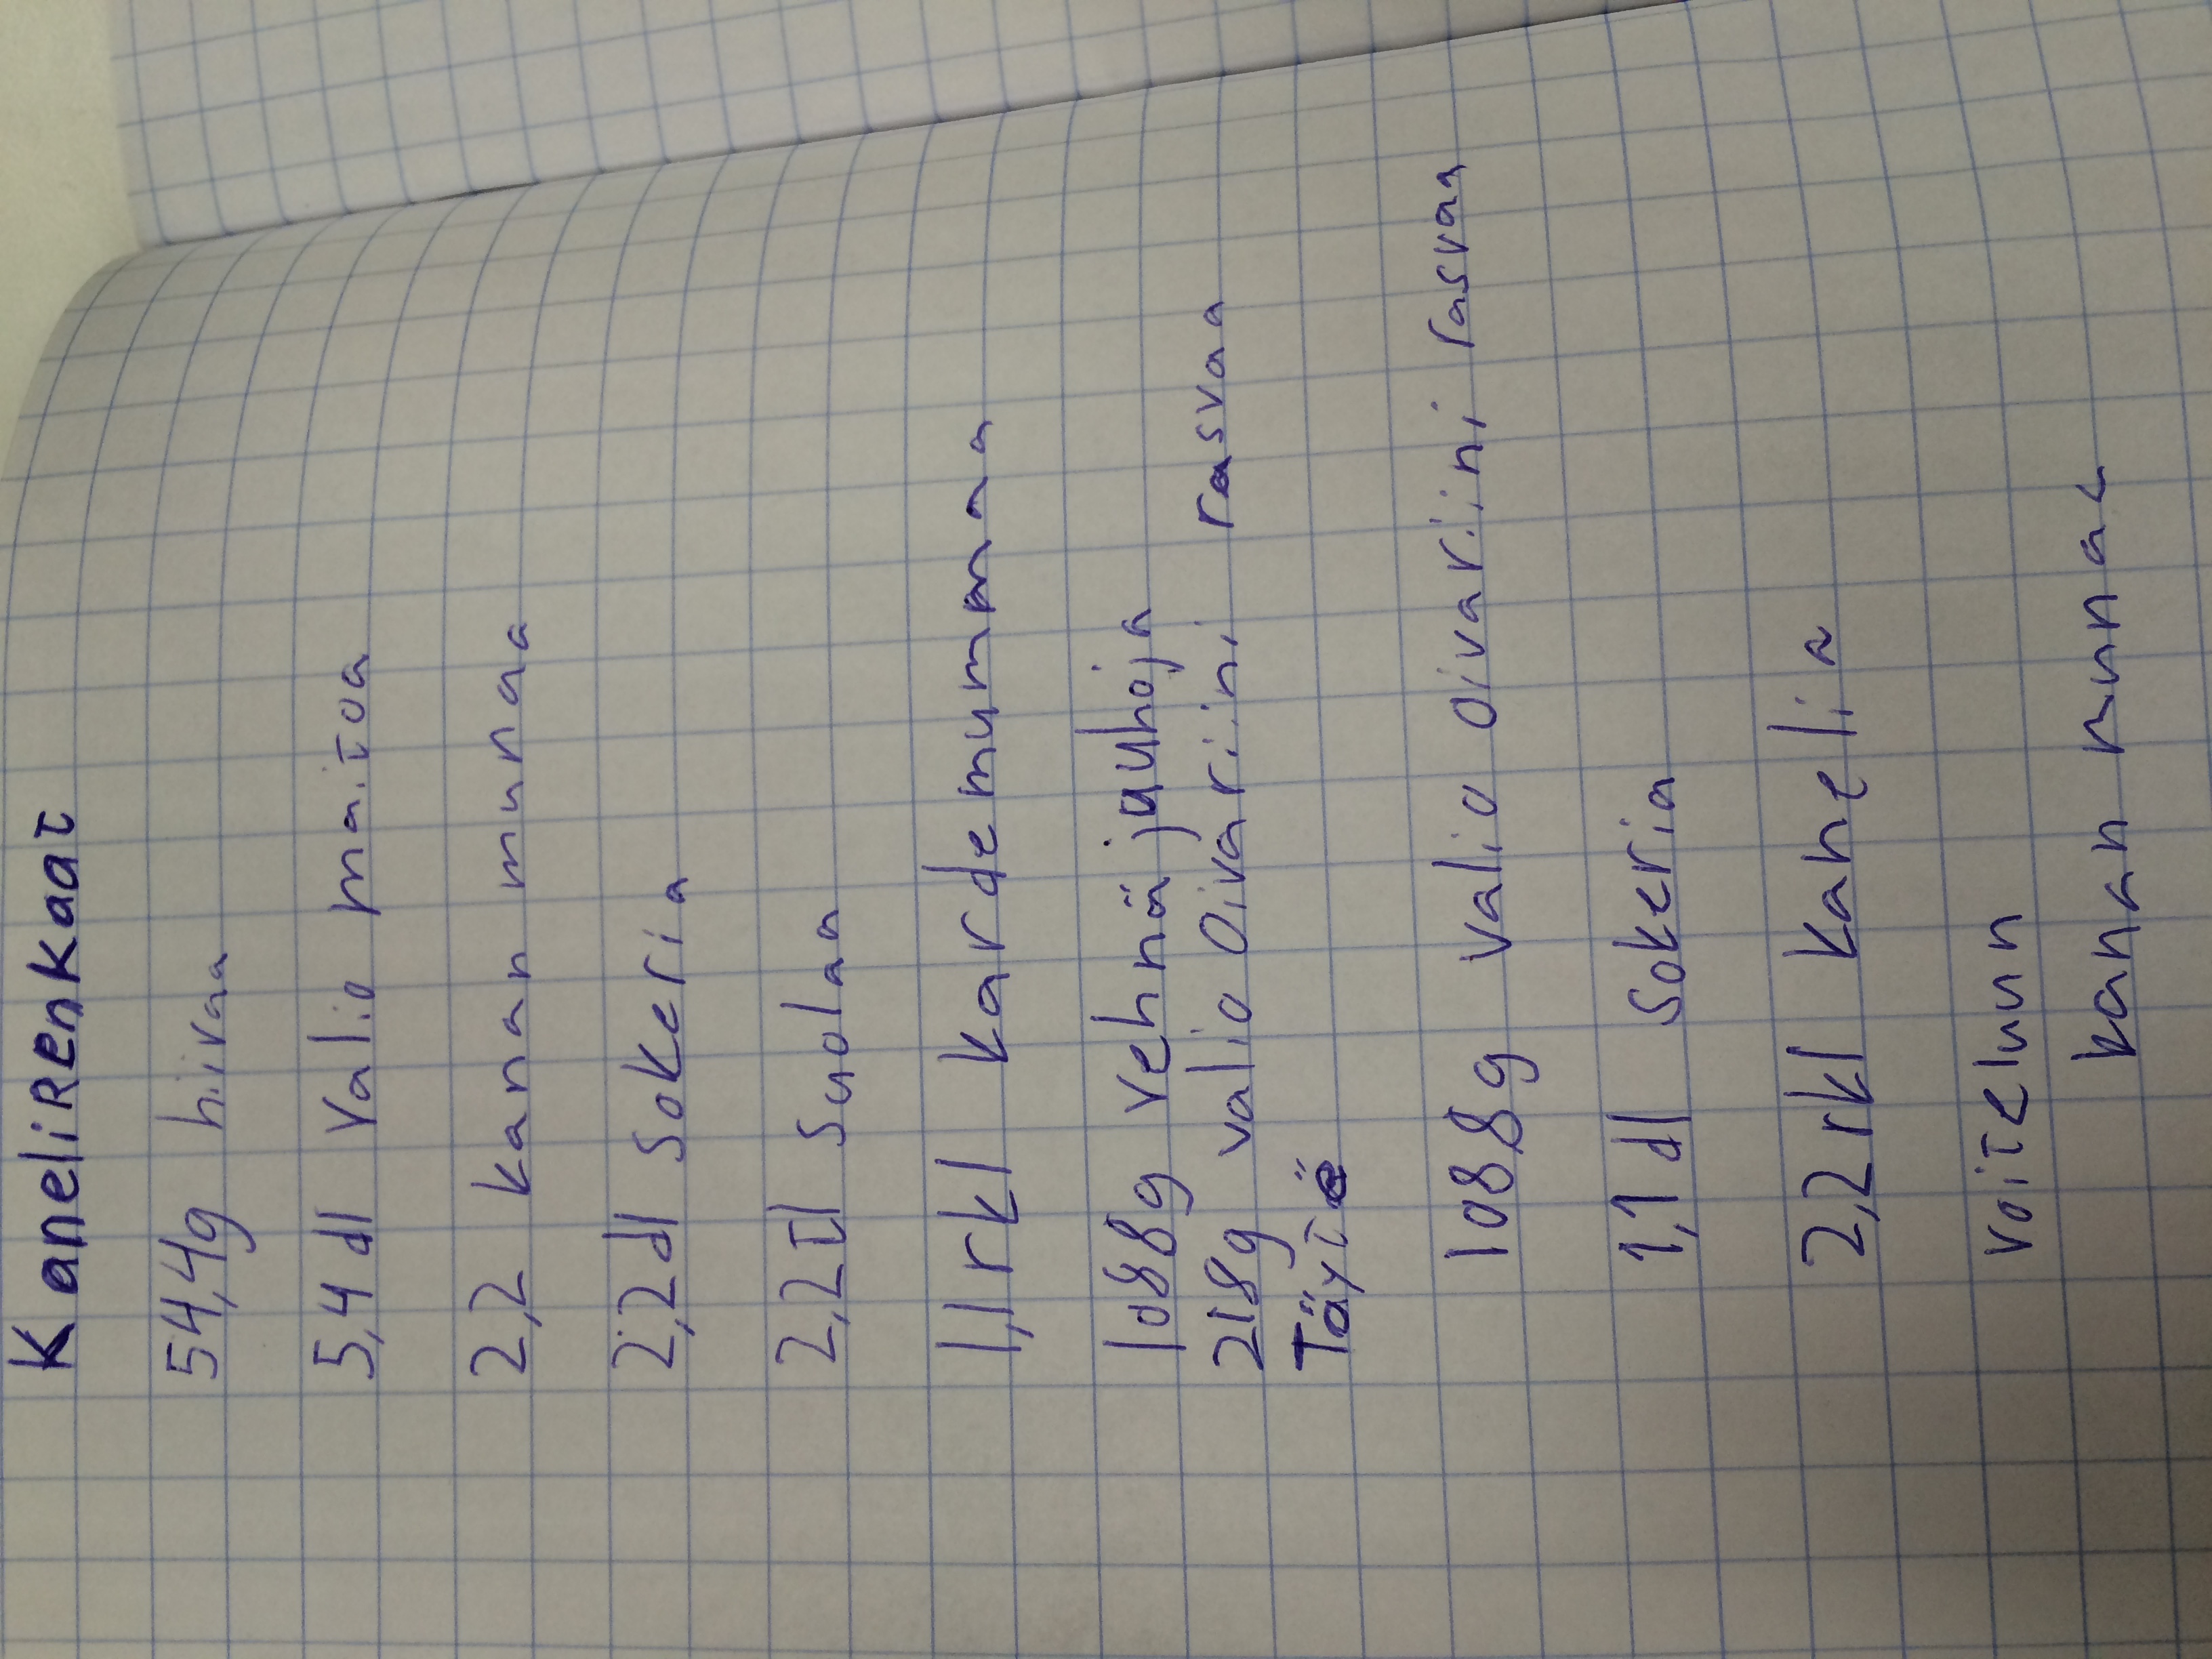 KaneliRenKaat
54,4g hiivaa
5,4 dl Valio maitoa
2,2 kanan munaa
2,2 dl sokeria
2,2 tl suolaa
1,1 rkl kardemummaa
1088g vehnä jauhoja
218g valio Oivariini rasvaa
Täytö
108,8g valio Oivariini rasvaa
1,1 dl sokeria
2,2 rkl kanelia
voiteluun
kanan munat